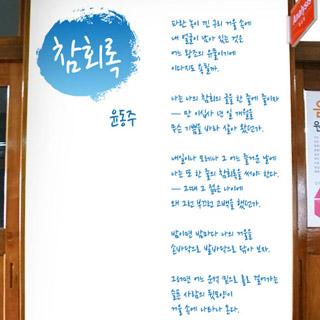 참회록
윤동주
파란 녹이 낀 구리 거울 속에
내 얼굴이 남아 있는 것은
어느 왕조의 유물이기에
이다지도 욕될까.
나는 나의 참회의 글을 한 줄에 줄이자
— 만 이십사 년 일 개월을
무슨 기쁨을 바라 살아 왔던가.
내일이나 모레나 그 어느 즐거운 날에
나는 또 한 줄의 참회록을 써야 한다.
— 그때 그 젊은 나이에
왜 그런 부끄런 고백을 했던가.
밤이면 밤마다 나의 거울을
손바닥으로 발바닥으로 닦아 보자.
그러면 어느 운석 밑으로 홀로 걸어가는
슬픈 사람의 뒷모양이
거울 속에 나타나 온다.